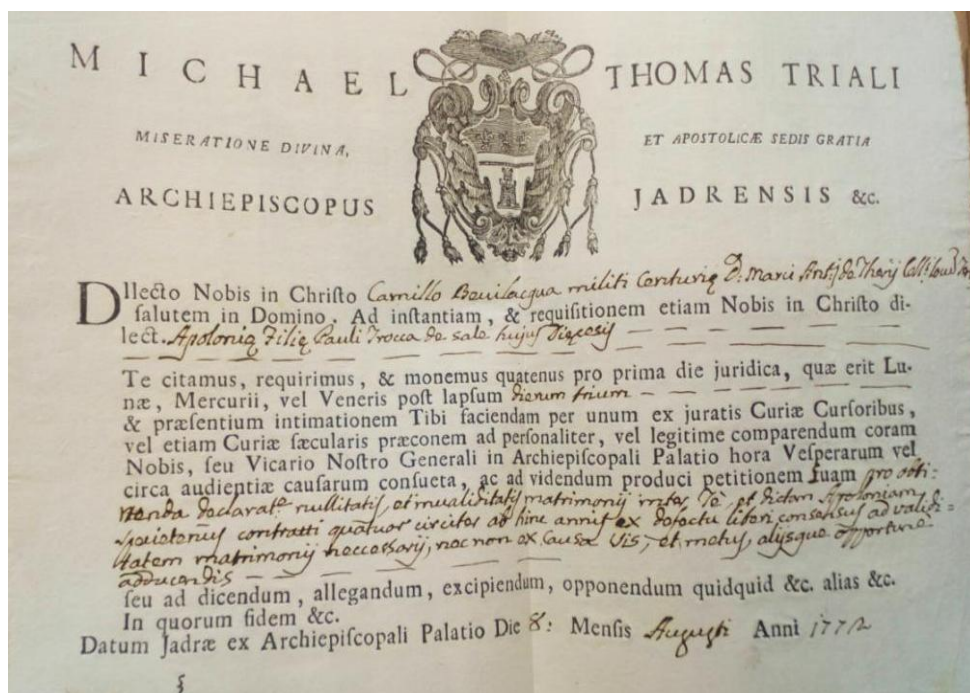 MICHAEL THOMAS TRIALI
MISERATIONE DIVINA, ET APOSTOLICÆ SEDIS GRATIA
ARCHIEPISCOPUS JADRENSIS &c.
DIlecto Nobis in Christo Camillo Bevilacqua militi Conturię D: Marci Antij de Thery
salutem in Domino. Ad instantiam, & requisitionem etiam Nobis in Christo di-
lect. Apolonię Filię Pauli Trocca de sale hujus Dięcesis
Te citamus, requirimus, & monemus quatenus pro prima die juridica, quæ erit Lu-
næ, Mercurii, vel Veneris post lapsum dierum trium
& præsentium intimationem Tibi faciendam per unum ex juratis Curiæ Cursoribus,
vel etiam Curiæ sæcularis præconem ad personaliter, vel legitime comparendum coram
Nobis, seu Vicario Nostro Generali in Archiepiscopali Palatio hora Vesperarum vel
circa audientiæ causarum consueta, ac ad videndum produci petitionem suam pro obti:
nenda declarat.e nullitatis, et invaliditatis matrimonij inter Te, et dictam Apoloniam
contratti quatuor circiter ab hinc annis ex defectu liberi consensus ad validi=
tatem matrimonij neccessarij, nec non ex causa vis, et metus, alijsque opportune
adducendis
seu ad dicendum, allegandum, excipiendum, opponendum quidquid &c. alias &c.
In quorum fidem &c.
Datum Jadræ ex Archiepiscopali Palatio Die 8: Mensis Augusti Anni 1772